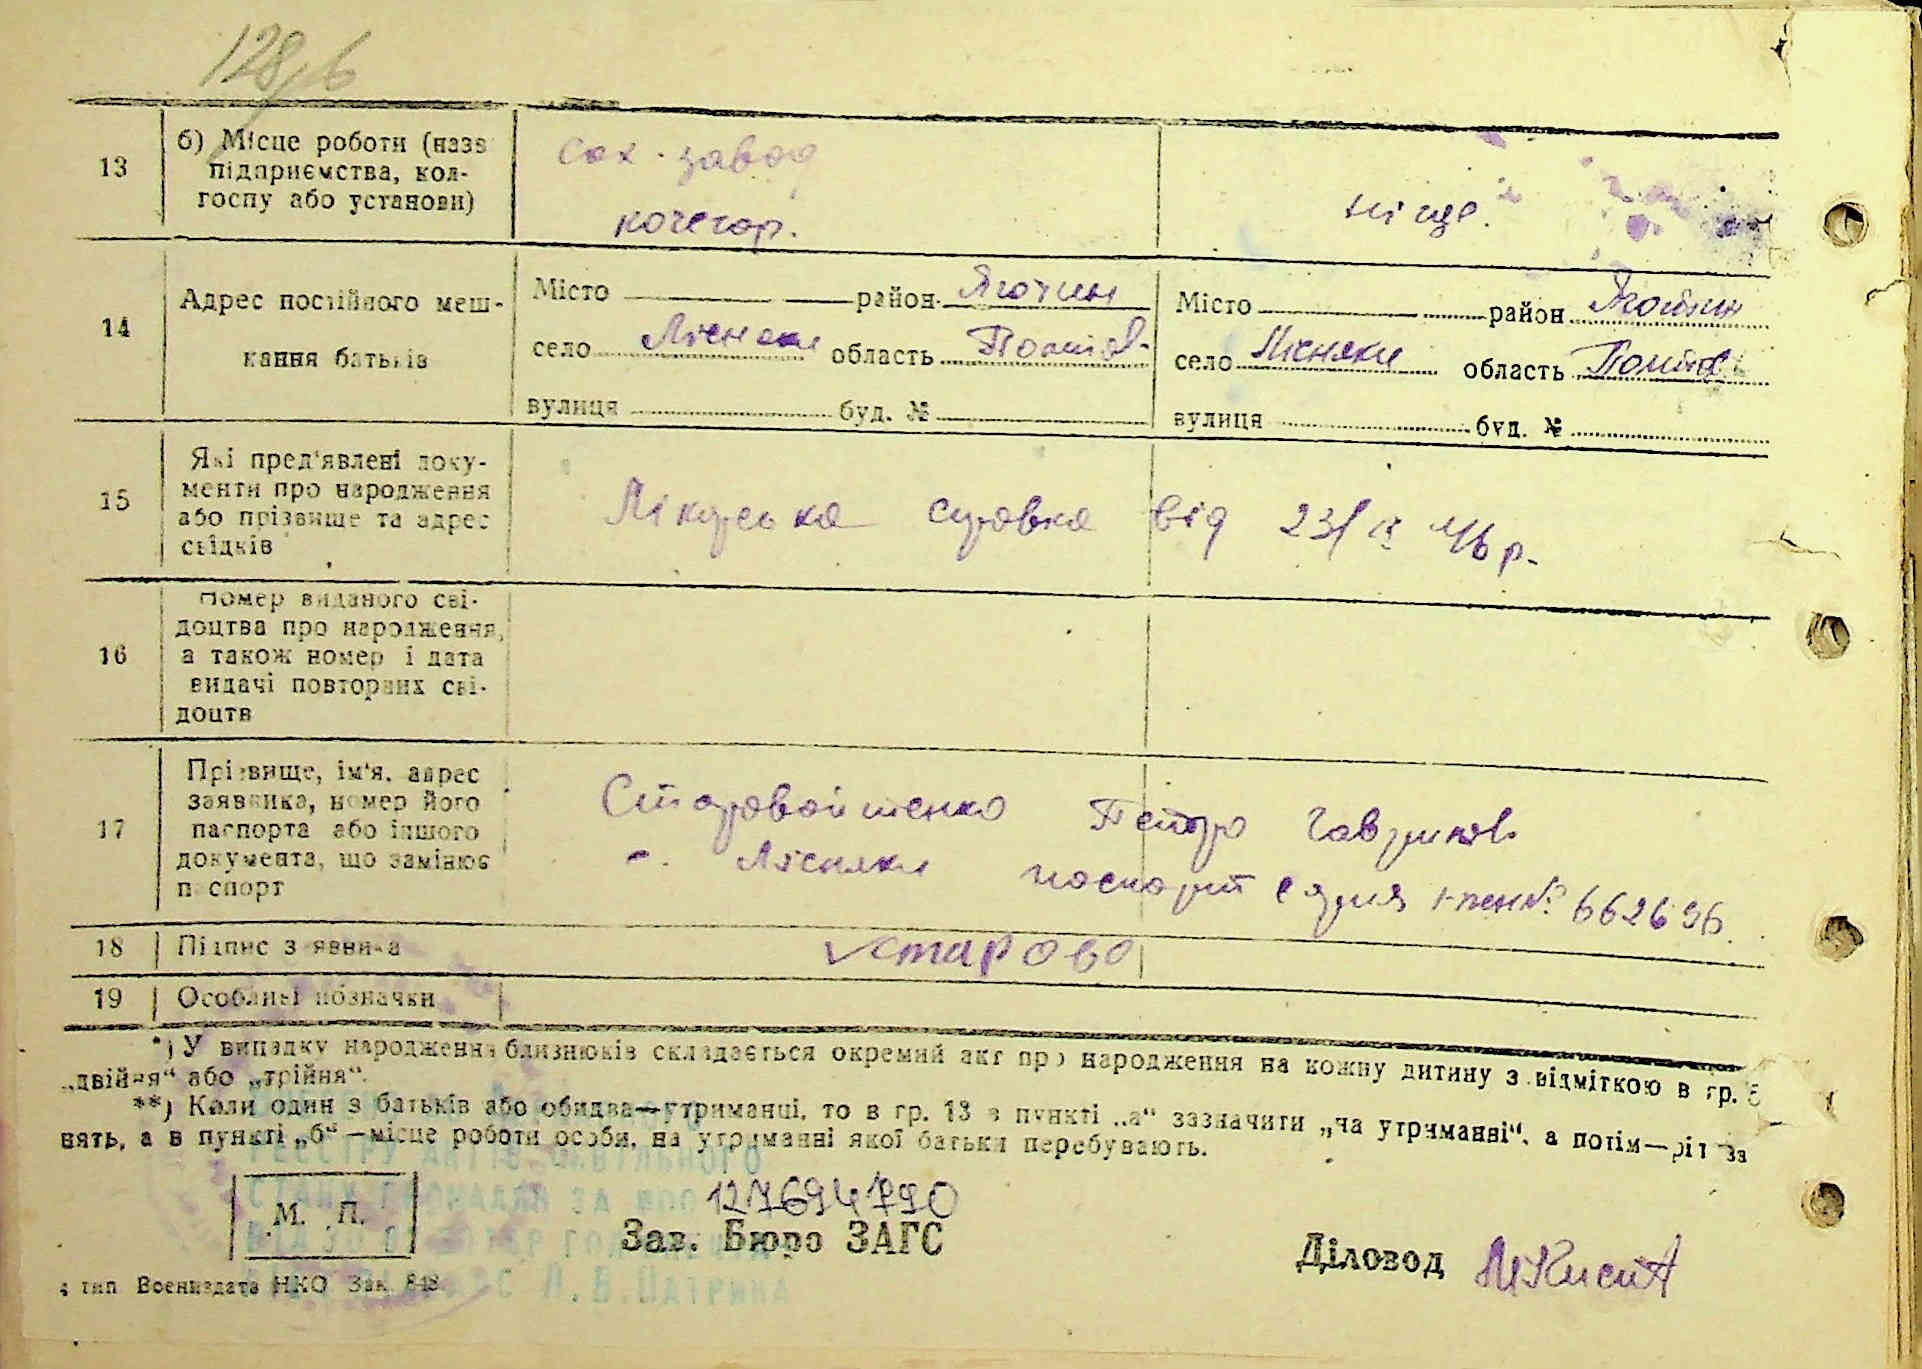 128
13
б) Місце роботи (назв
підприємства, кол-
госпу або установи)
Сах. завод
кочегар.
ніде.
14
Адрес постійного меш-
кання батьків
Місто район Яготин
село Лісняки область Полтав-
вулиця буд. №
Місто район Яготин
село Лісняки область Полтав
вулиця буд. №
15
Які пред'явлені доку-
менти про народження
або прізвище та адрес
свідків
Лікарська справка від 23/ 46 р.
16
Номер виданого сві-
доцтва про народження,
а також номер і дата
видачі повторних сві-
доцтв
17
Прізвище, ім'я, адрес
заявника, номер його
паспорта або іншого
документа, що замінює
паспорт
Старовойтенко Петро Гаврилов
с. Лісняки паспорт серия № 662696
18
Підпис заявника
старово
19
Особливі позначки
*) У випадку народження близнюків складається окремий акт про народження на кожну дитину з відміткою в гр. 5
„двійня“ або „трійня“.
**) Коли один з батьків або обидва—утриманці, то в гр. 13 в пункті „а“ зазначити „на утриманні“, а потім—рід за
нять, а в пункті „б“—місце роботи особи, на утриманні якої батьки перебувають.
РЕЄСТРУ АКТІВ ЦИВІЛЬНОГО
СТАНУ
127694790
М. П.
Зав. Бюро ЗАГС
Діловод
4 тип Воениздата НКО Зак. 848